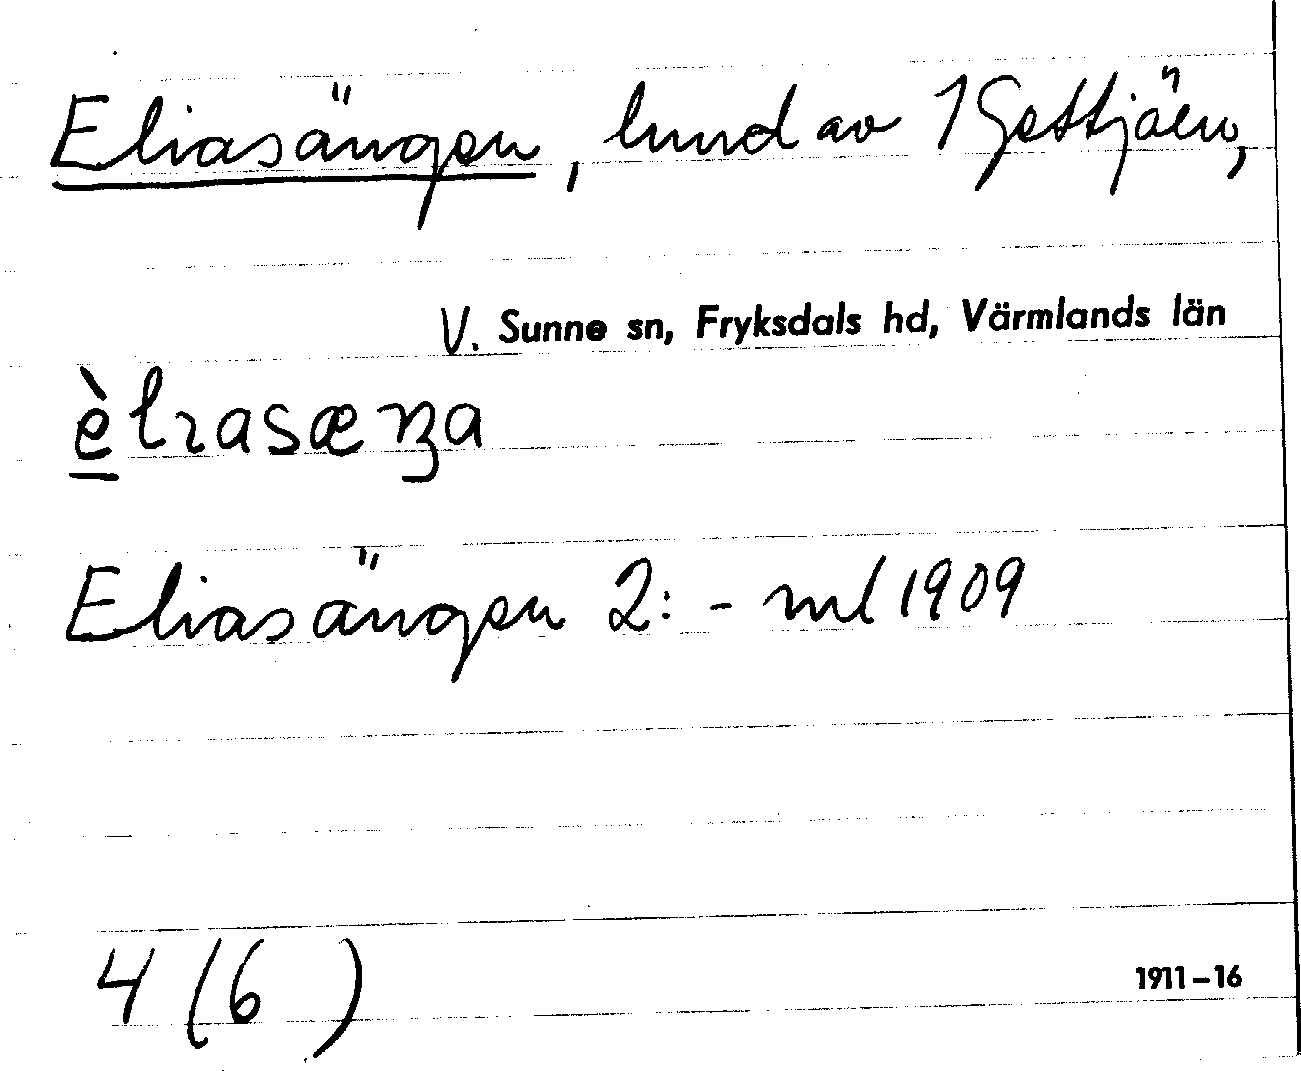 Eliasängen, lund av 1 Gettjärn,
V. Sunne sn, Fryksdals hd, Värmlands län
èlıasæŋa
Eliasängen 2: - ml 1909
4 (6 )
1911-16